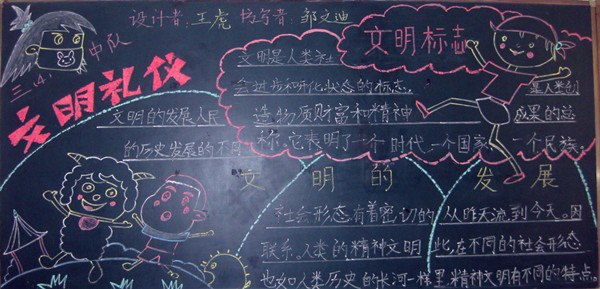 设计者：王虎 抄写者：邹文迪
中队
三（4）
文明礼仪
文明标志
文明是人类社
会进步和开化状态的标志，是人类创
文明的发展人民 造物质财富和精神 成果的总
的历史发展的不同 称，它表明了一个时代一个国家 一个民族。
文明的发展
社会形态有着密切的 从昨天流到今天。因
联系。人类的精神文明 此，在不同的社会形态
也如人类历史的长河一样里，精神文明有不同的特点。